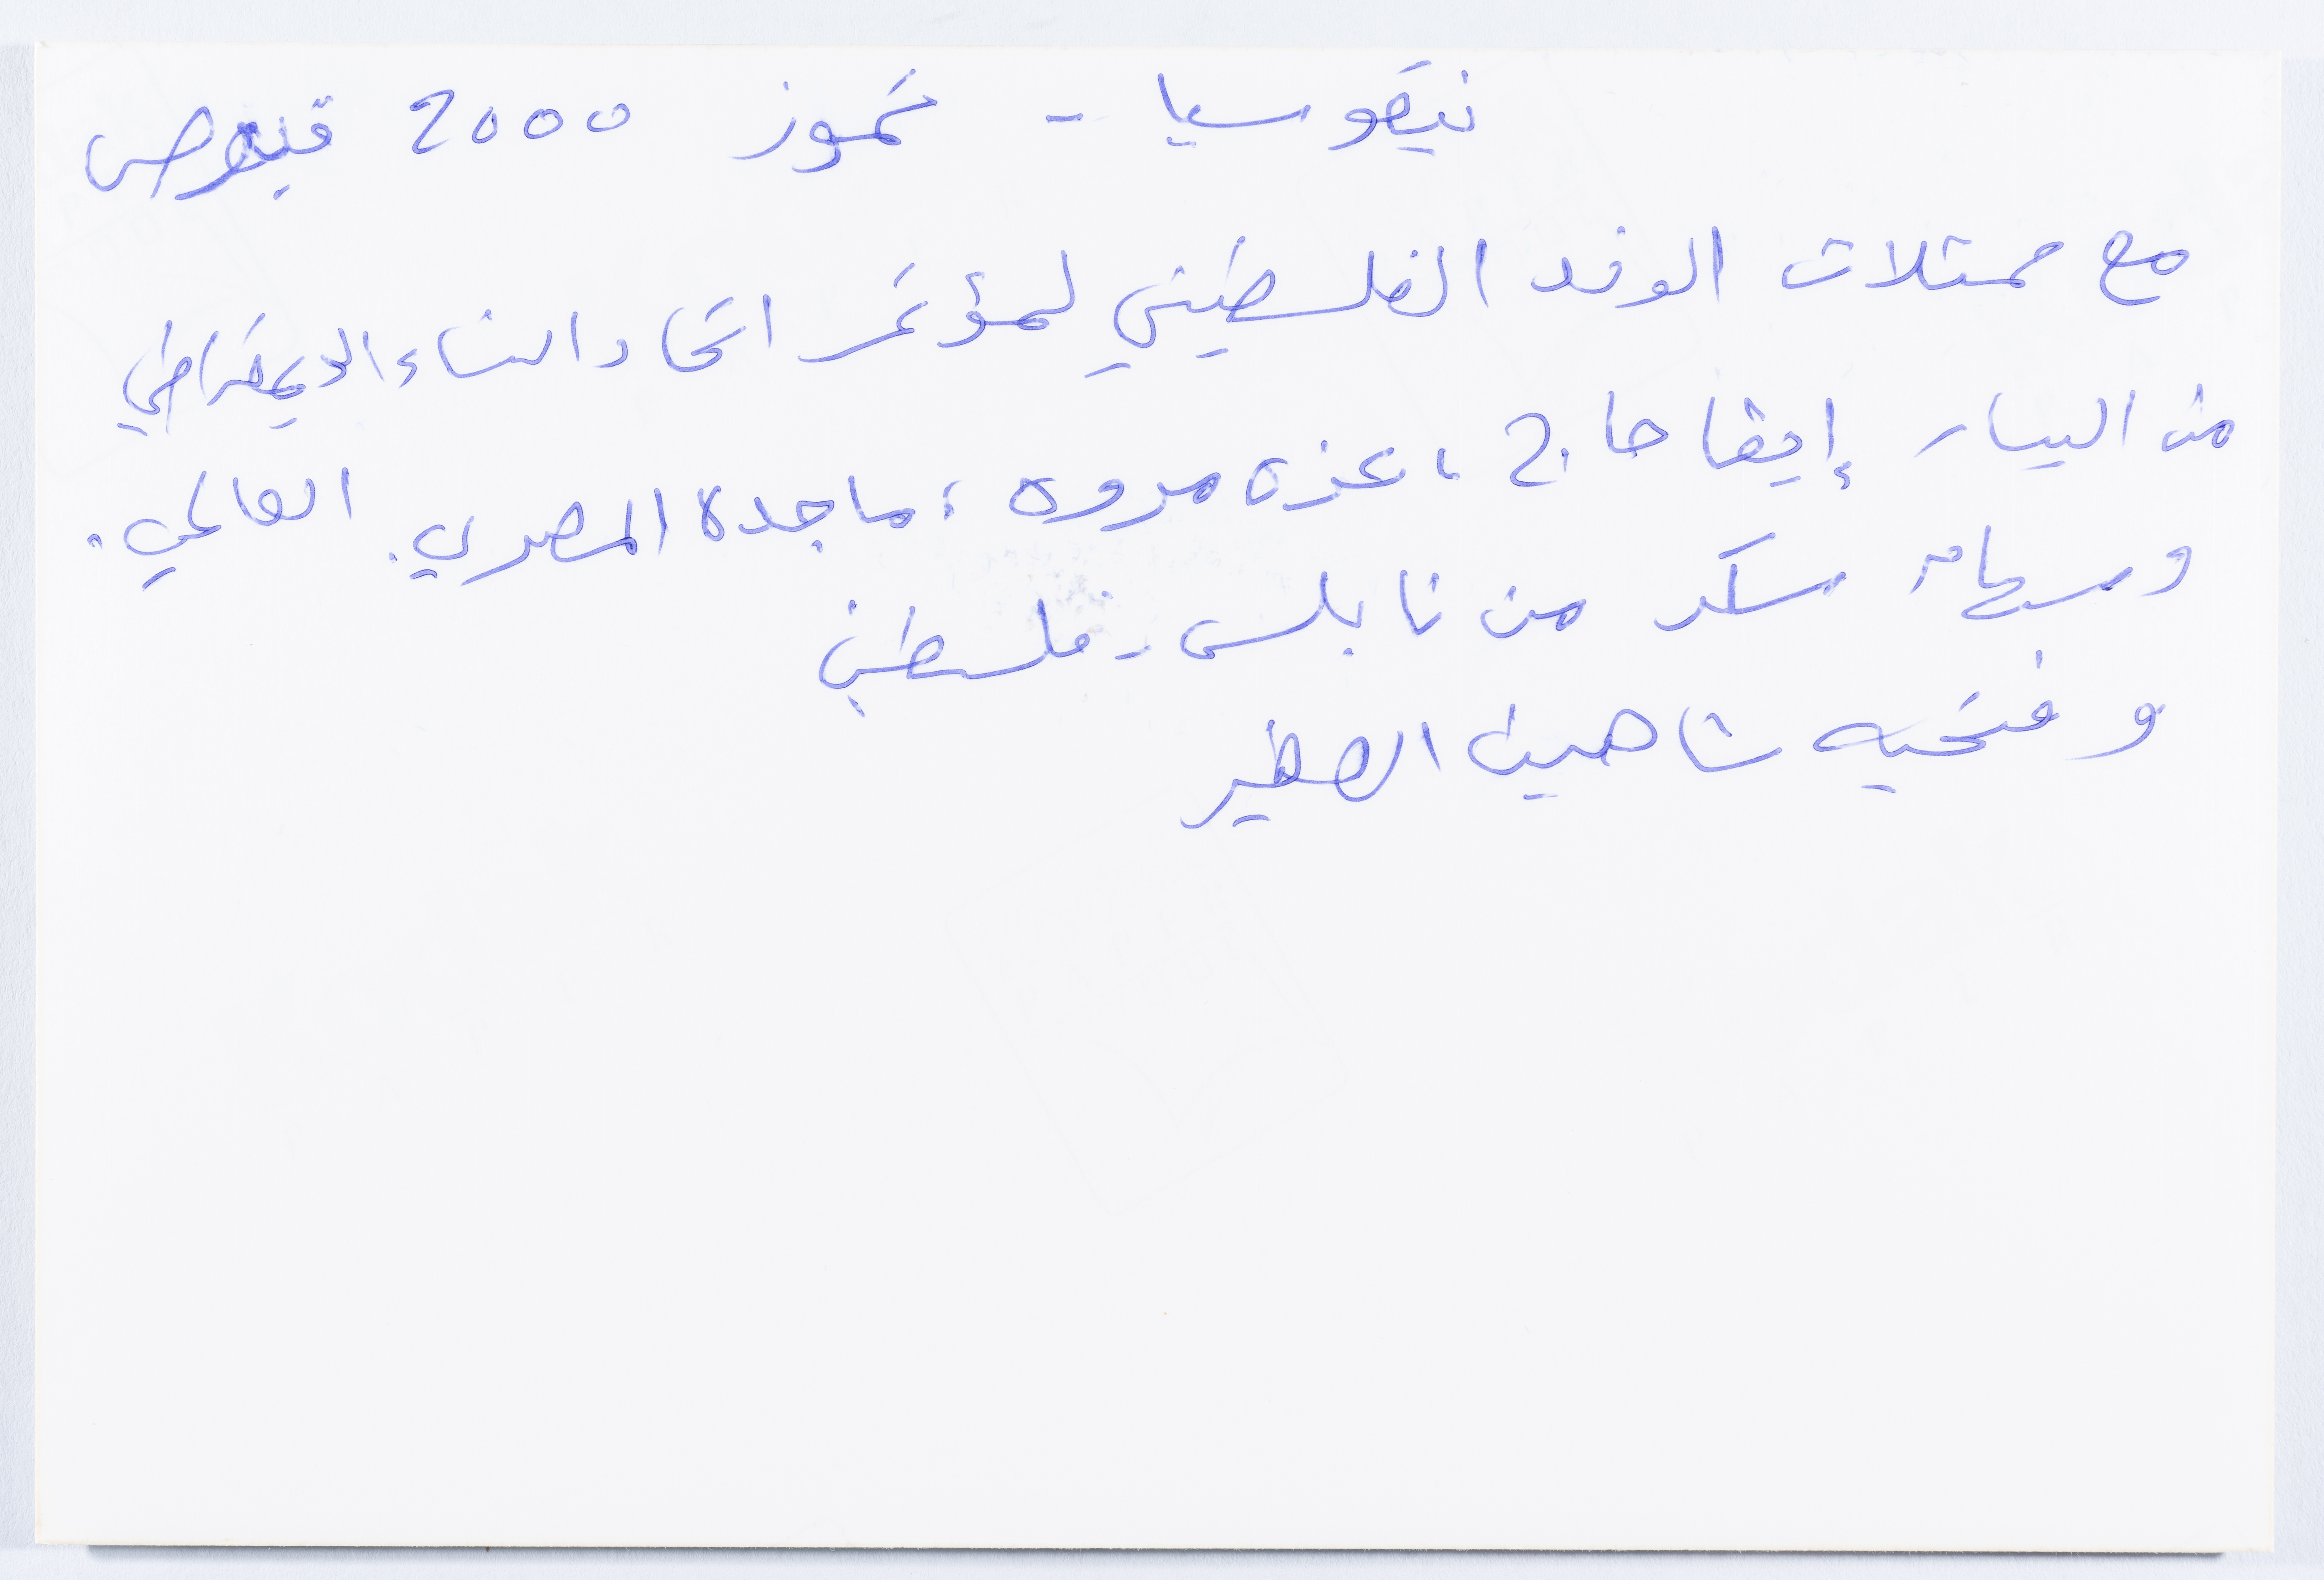 نيقوسيا - تموز 2000 قبرص
مع ممثلات الوفد الفلسطيني لمؤتمر اتحاد النساء الديمقراطي
العالمي.
من اليسار إيفا حاج، عزة مروه، ماجدة المصري.
وسهام سكر من نابلس - فلسطين
وفتحيه شاهين الصغير